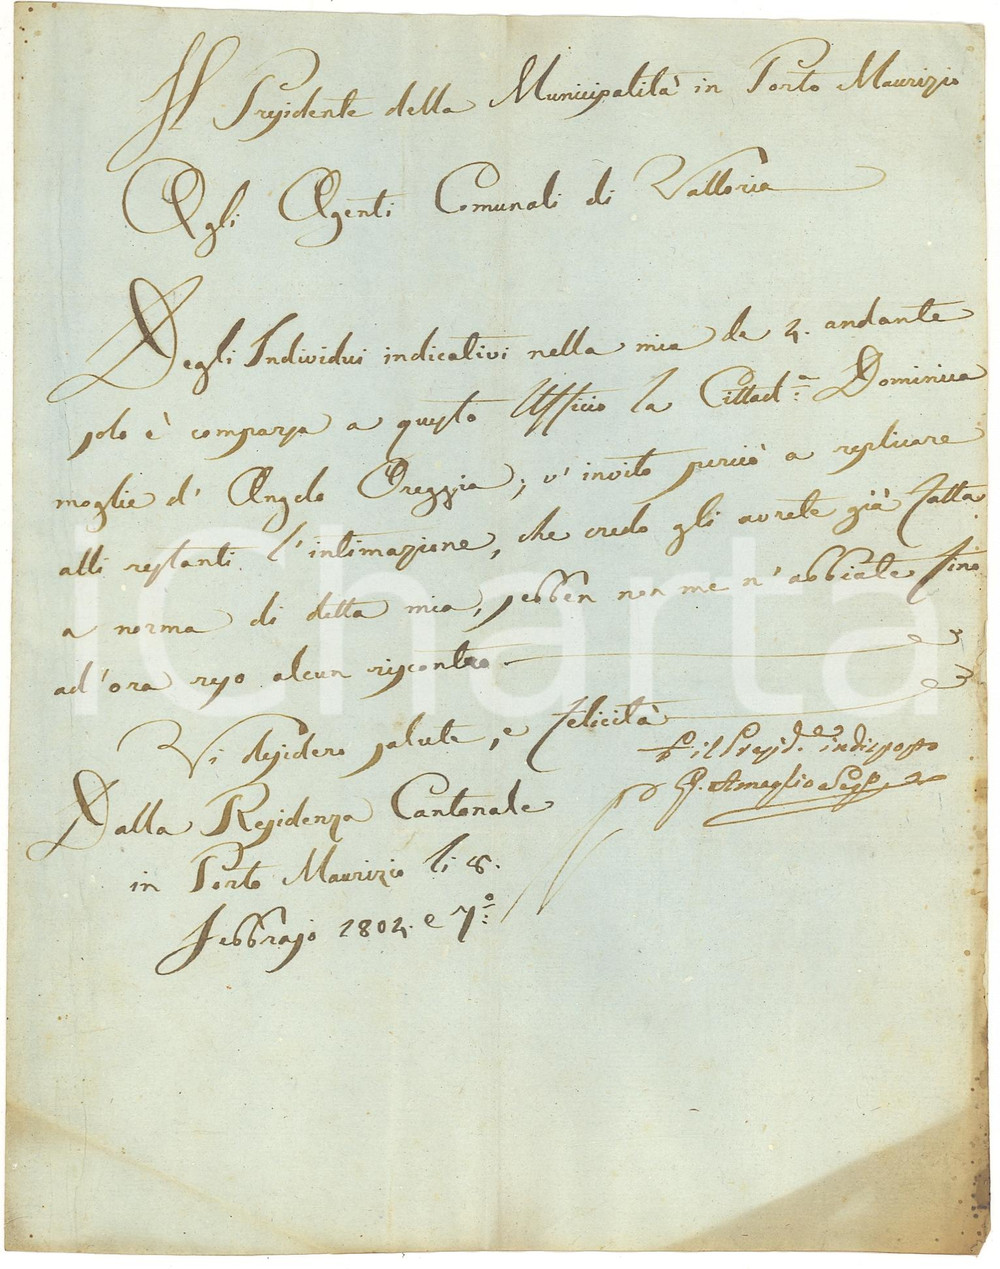 Il Presidente della Municipalità in Porto Maurizio
Agli Agenti Comunali di Valloria
Degli Individui indicativi nella mia de 4. andante
solo è comparsa a questo Ufficio la Cittad:ª Dominica
moglie d' Angelo Oreggia; v' invito perciò a replicare
alli restanti l'intimazione, che credo gli avrete già fatta
a norma di detta mia, sebben non me n'abbiate fino
ad'ora reso alcun riscontro
Vi desidero salute, e felicità
P. il Presid.e indisposto
G. Ameglio Seg.
Dalla Residenza Cantonale
in Porto Maurizio li 8.
Febbrajo 1804. e 7:º
iCharta